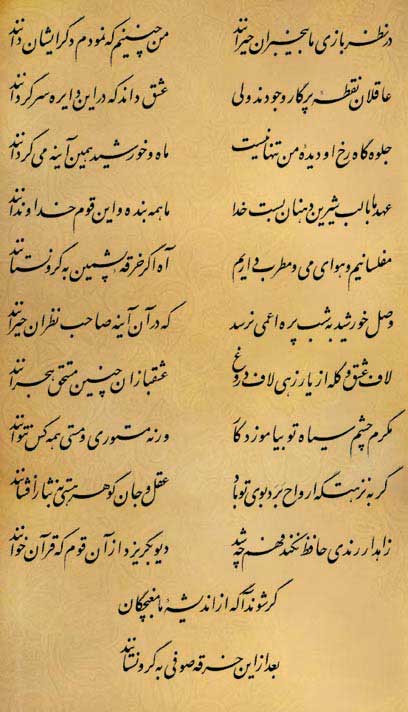 در نظربازی ما بیخبران حیرانند من چنینم که نمودم دگر ایشان دانند
عاقلان نقطه پرگار وجودند ولی عشق داند که در این دایره سرگردانند
جلوه گاه رخ او دیده من تنها نیست ماه و خورشید همین آینه می گردانند
عهد ما با لب شیرین دهنان بست خدا ما همه بنده و این قوم خداوندانند
مفلسانیم و هوای می و مطرب داریم آه اگر خرقه پشمین به گرو نستانند
وصل خورشید به شب پره اعمی نرسد که در آن آینه صاحب نظران حیرانند
لاف عشق و گله از یار زهی لاف دروغ عشقبازان چنین مستحق هجرانند
مگرم چشم سیاه تو بیاموزد کار ورنه مستوری و مستی همه کس نتوانند
گر به نزهتگه ارواح برد بوی تو باد عقل و جان گوهر هستی به نثار افشانند
زاهد ار رندی حافظ نکند فهم چه شد دیو بگریزد از آن قوم که قرآن خوانند
گر شوند آگه از اندیشه ما مغبچگان
بعد از این خرقه صوفی به گرو نستانند